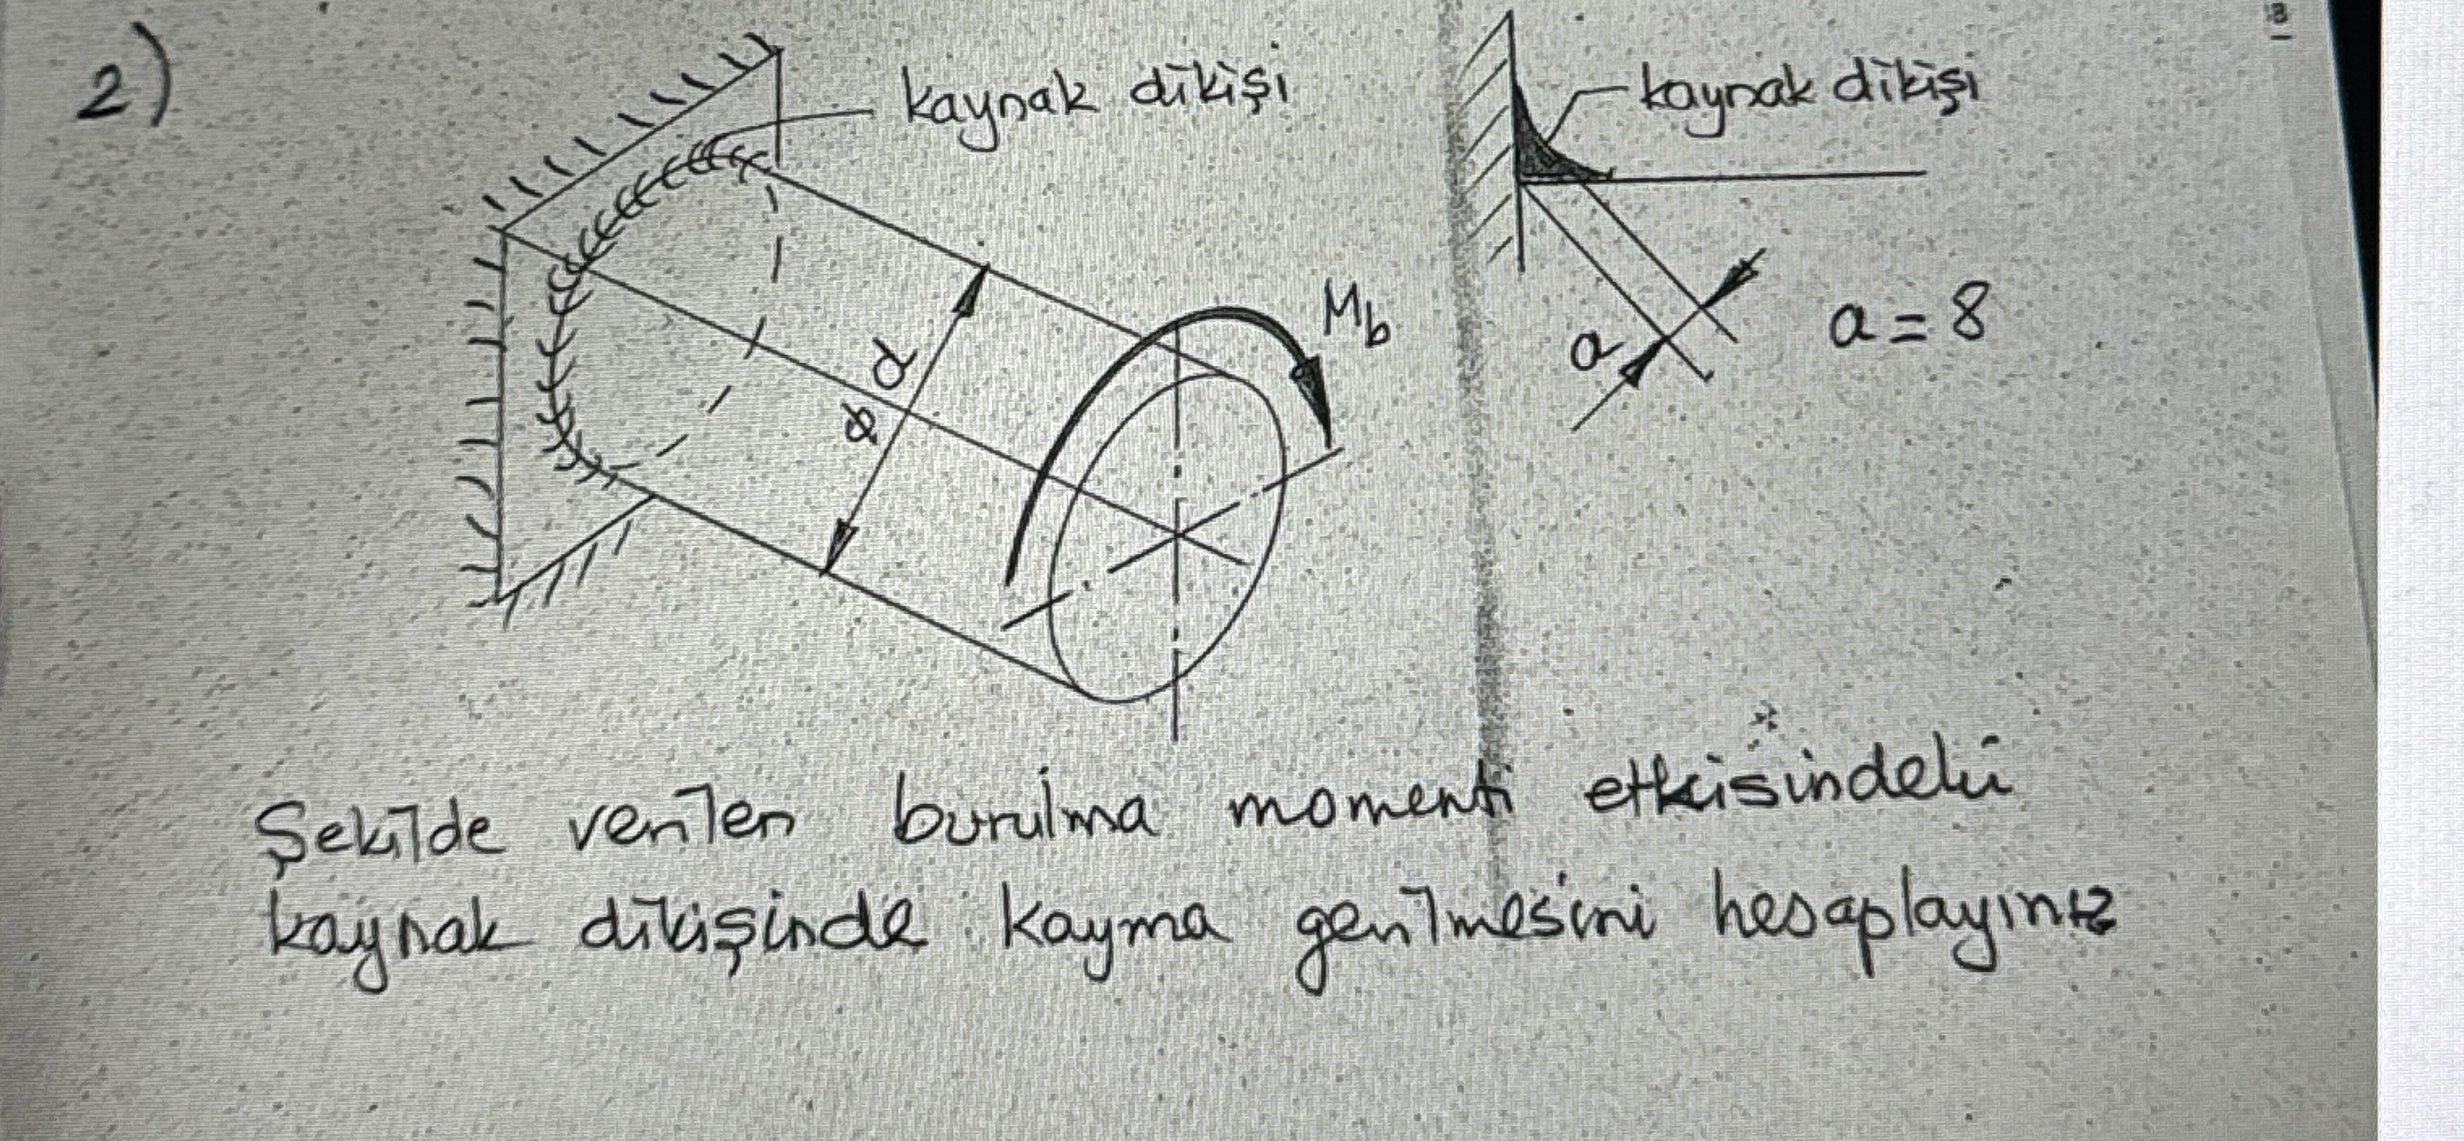 2)
kaynak dikişi
kaynak dikişi
Mb
ϕ d
a
a = 8
Şekilde verilen burulma momenti etkisindeki
kaynak dikişinde kayma gerilmesini hesaplayınız